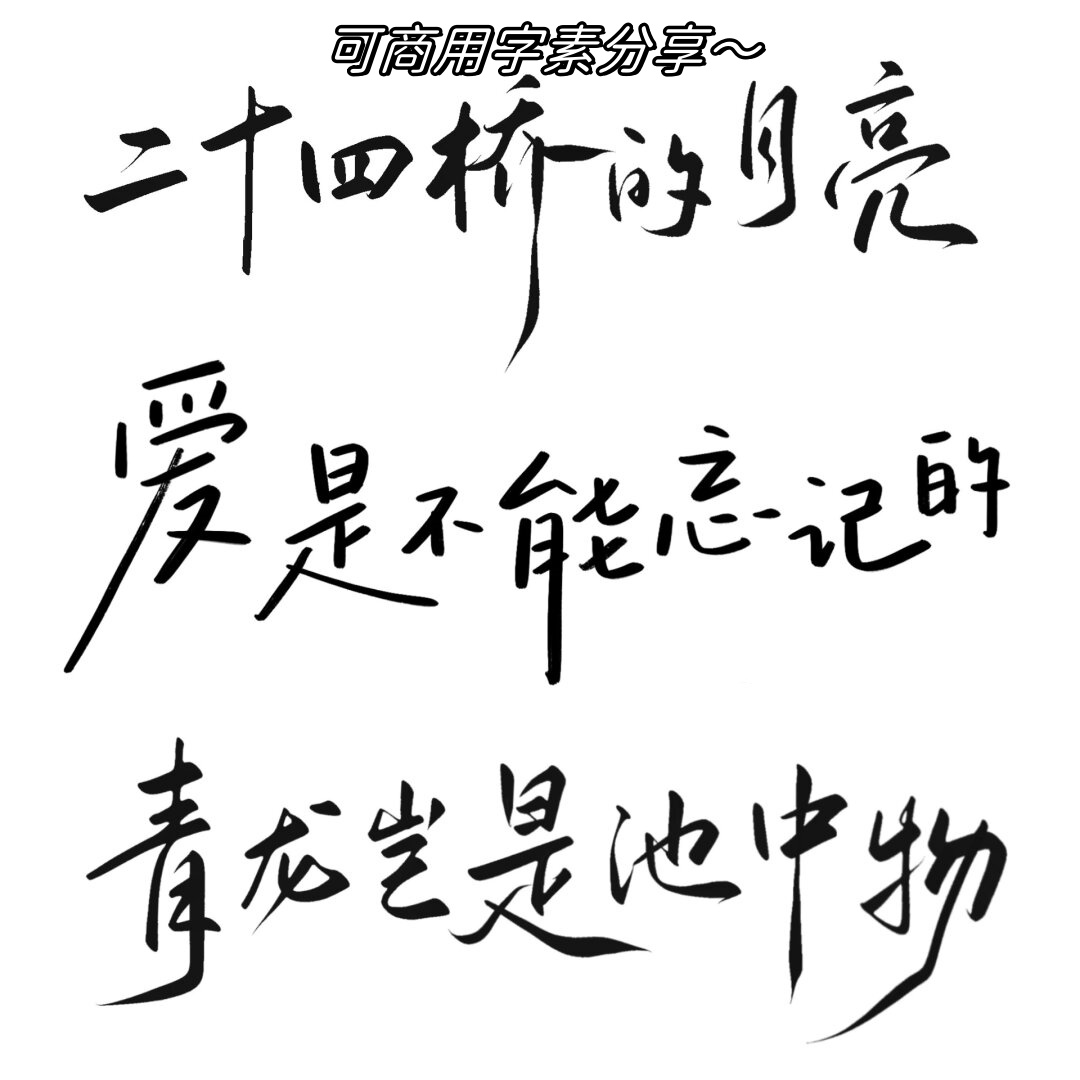 可商用字素分享～
二十四桥的月亮
爱是不能忘记的
青龙岂是池中物